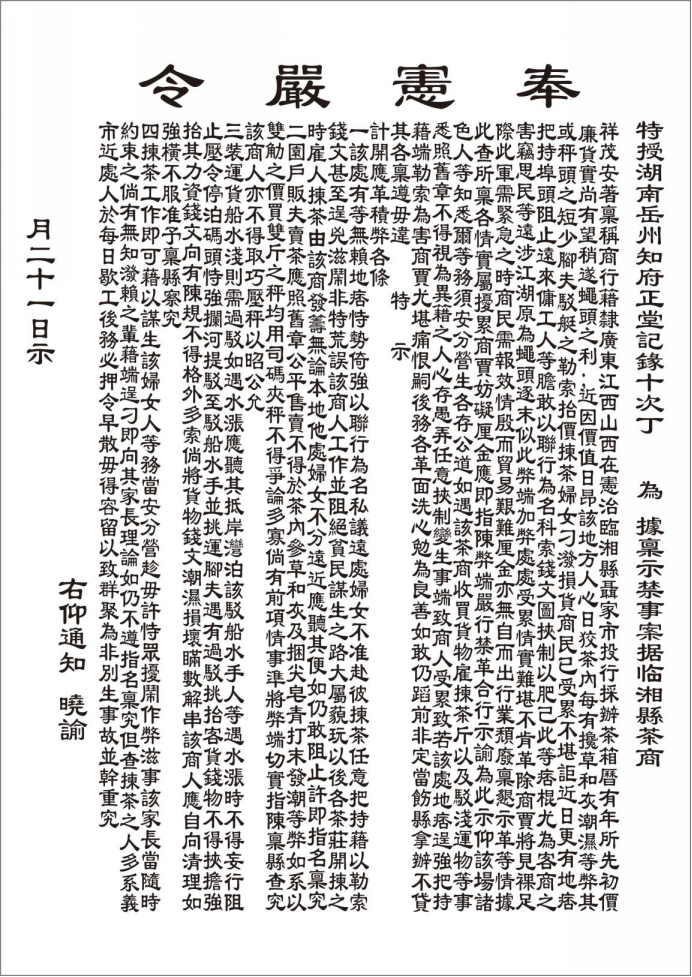 奉憲嚴令
特授湖南岳州知府正堂記錄十次丁　為　據稟示禁事案据临湘縣茶商
祥茂安著稟稱商行藉隸廣東江西山西在憲治臨湘縣聶家市投行採辦茶箱曆有年所先初價
廉貨實尚有望稍遂蠅頭之利，近因價值日昂該地方人心日狡茶內每有攙草和灰潮濕等弊其
或秤頭之短少腳夫駁艇之勒索抬價揀茶婦女刁潑損貨商民已受累不堪詎近日更有地痞
把持埠頭阻止遠來傭工人等膽敢以聯行為名科索錢文圖挾制以肥己此等痞棍尤為客商之
害竊思民等遠涉江湖原為蠅頭逐末似此弊端加弊處處受累情實難堪不肯革除商賈將見裸足
際此軍需緊急之時商民需報效情殷而貿易艱難厘金亦無自而出行業頹廢稟懇示革等情據
此查所稟各情實屬擾累商賈妨礙厘金應即指陳弊端嚴行禁革合行示諭為此示仰該場諸
色人等知悉爾等務須安分營生各存公道如遇該茶商收買貨物雇揀茶斤以及駁淺運物等事
悉照舊章不得視為異藉之人心存愚弄任意挾制變生事端致商人受累致若該處地痞逞強把持
藉端勒索為害商賈尤堪痛恨嗣後務各革面洗心勉為良善如敢仍蹈前非定當飭縣拿辦不貸
其各稟遵毋違　　特　示
計開應革積弊各條
一該處有等無賴地痞恃勢倚強以聯行為名私議遠處婦女不准赴彼揀茶任意把持藉以勒索
錢文甚至逞兇滋鬧非特荒誤該商人工作並阻絕貧民謀生之路大屬藐玩以後各茶莊開揀之
時雇人揀茶由該商發籌無論本地他處婦女不分遠近應聽其便如仍敢阻止許即指名稟究
二園戶販夫賣茶應照舊章公平售賣不得於茶內參草和灰及捆尖皂青打末發潮等弊如系以
雙觔之價買雙斤之秤均用司碼夾秤不得爭論多寡倘有前項情事準將弊端切實指陳稟縣查究
該商人亦不得取巧壓秤以昭公允
三裝運貨船水淺則需過駁如遇水漲應聽其抵岸灣泊該駁船水手人等遇水漲時不得妄行阻
止壓令停泊碼頭恃強攔河提駁至駁船水手並挑運腳夫遇有過駁挑抬客貨錢物不得挾擔強
抬其力資錢文向有陳規不得格外多索倘將貨物錢文潮濕損壞瞞數解串該商人應自向清理如
強橫不服准予稟縣察究
四揀茶工作即可藉以謀生該婦女人等務當安分營趁毋許恃眾擾鬧作弊滋事該家長當隨時
約束之倘有無知潑賴之輩藉端逞刁即向其家長理論如仍不遵指名稟究但查揀茶之人多系義
市近處人於每日歇工後務必押令早散毋得容留以致群聚為非別生事故並幹重究
右仰通知　曉諭
月二十一日示